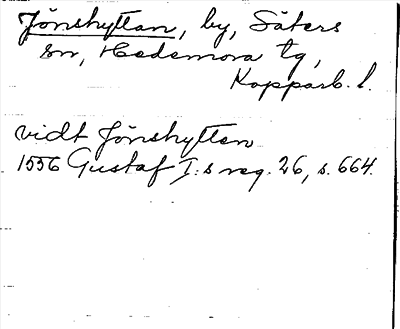 Jönshyttan, by, Säters
sn, Hedemora tg,
Kopparb. l.
vidt Jönshytten
1556 Gustaf I:s reg. 26, s. 664.